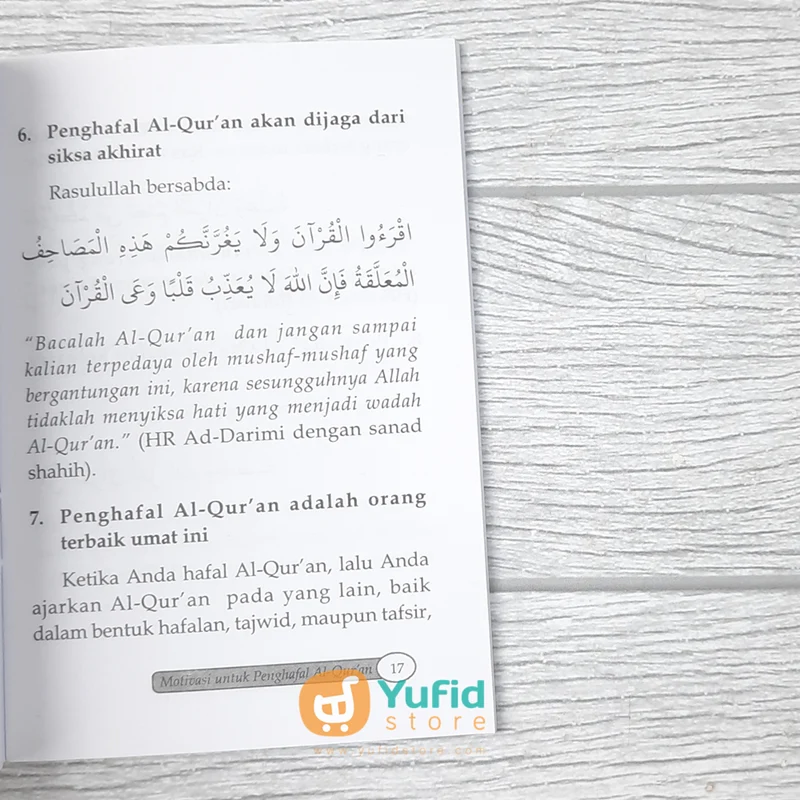 6. Penghafal Al-Qur'an akan dijaga dari
siksa akhirat
Rasulullah bersabda:
اقْرَءُوا الْقُرْآنَ وَلَا يَغُرَّنَّكُمْ هَذِهِ الْمَصَاحِفُ
الْمُعَلَّقَةُ فَإِنَّ اللهَ لَا يُعَذِّبُ قَلْبًا وَعَى الْقُرْآنَ
"Bacalah Al-Qur'an dan jangan sampai
kalian terpedaya oleh mushaf-mushaf yang
bergantungan ini, karena sesungguhnya Allah
tidaklah menyiksa hati yang menjadi wadah
Al-Qur'an." (HR Ad-Darimi dengan sanad
shahih).
7. Penghafal Al-Qur'an adalah orang
terbaik umat ini
Ketika Anda hafal Al-Qur'an, lalu Anda
ajarkan Al-Qur'an pada yang lain, baik
dalam bentuk hafalan, tajwid, maupun tafsir,
Motivasi untuk Penghafal Al-Qur'an 17
Yufid
store
www.yufidstore.com